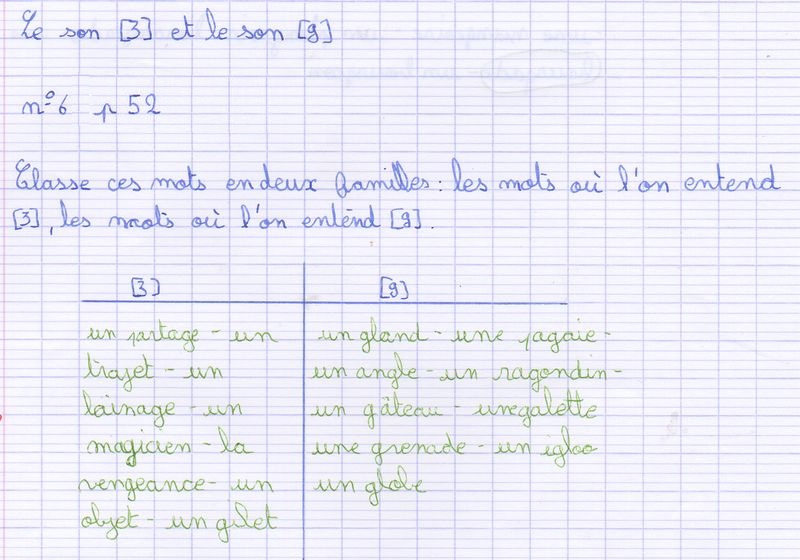 Le son [ʒ] et le son [g]
n°6 p 52
Classe ces mots en deux familles : les mots où l'on entend
[ʒ], les mots où l'on entend [g].
[ʒ] [g]
un partage - un
trajet - un
lainage - un
magicien - la
vengeance - un
objet - un gilet
un gland - une pagaie -
un angle - un ragondin -
un gâteau - une galette
une grenade - un igloo
un globe